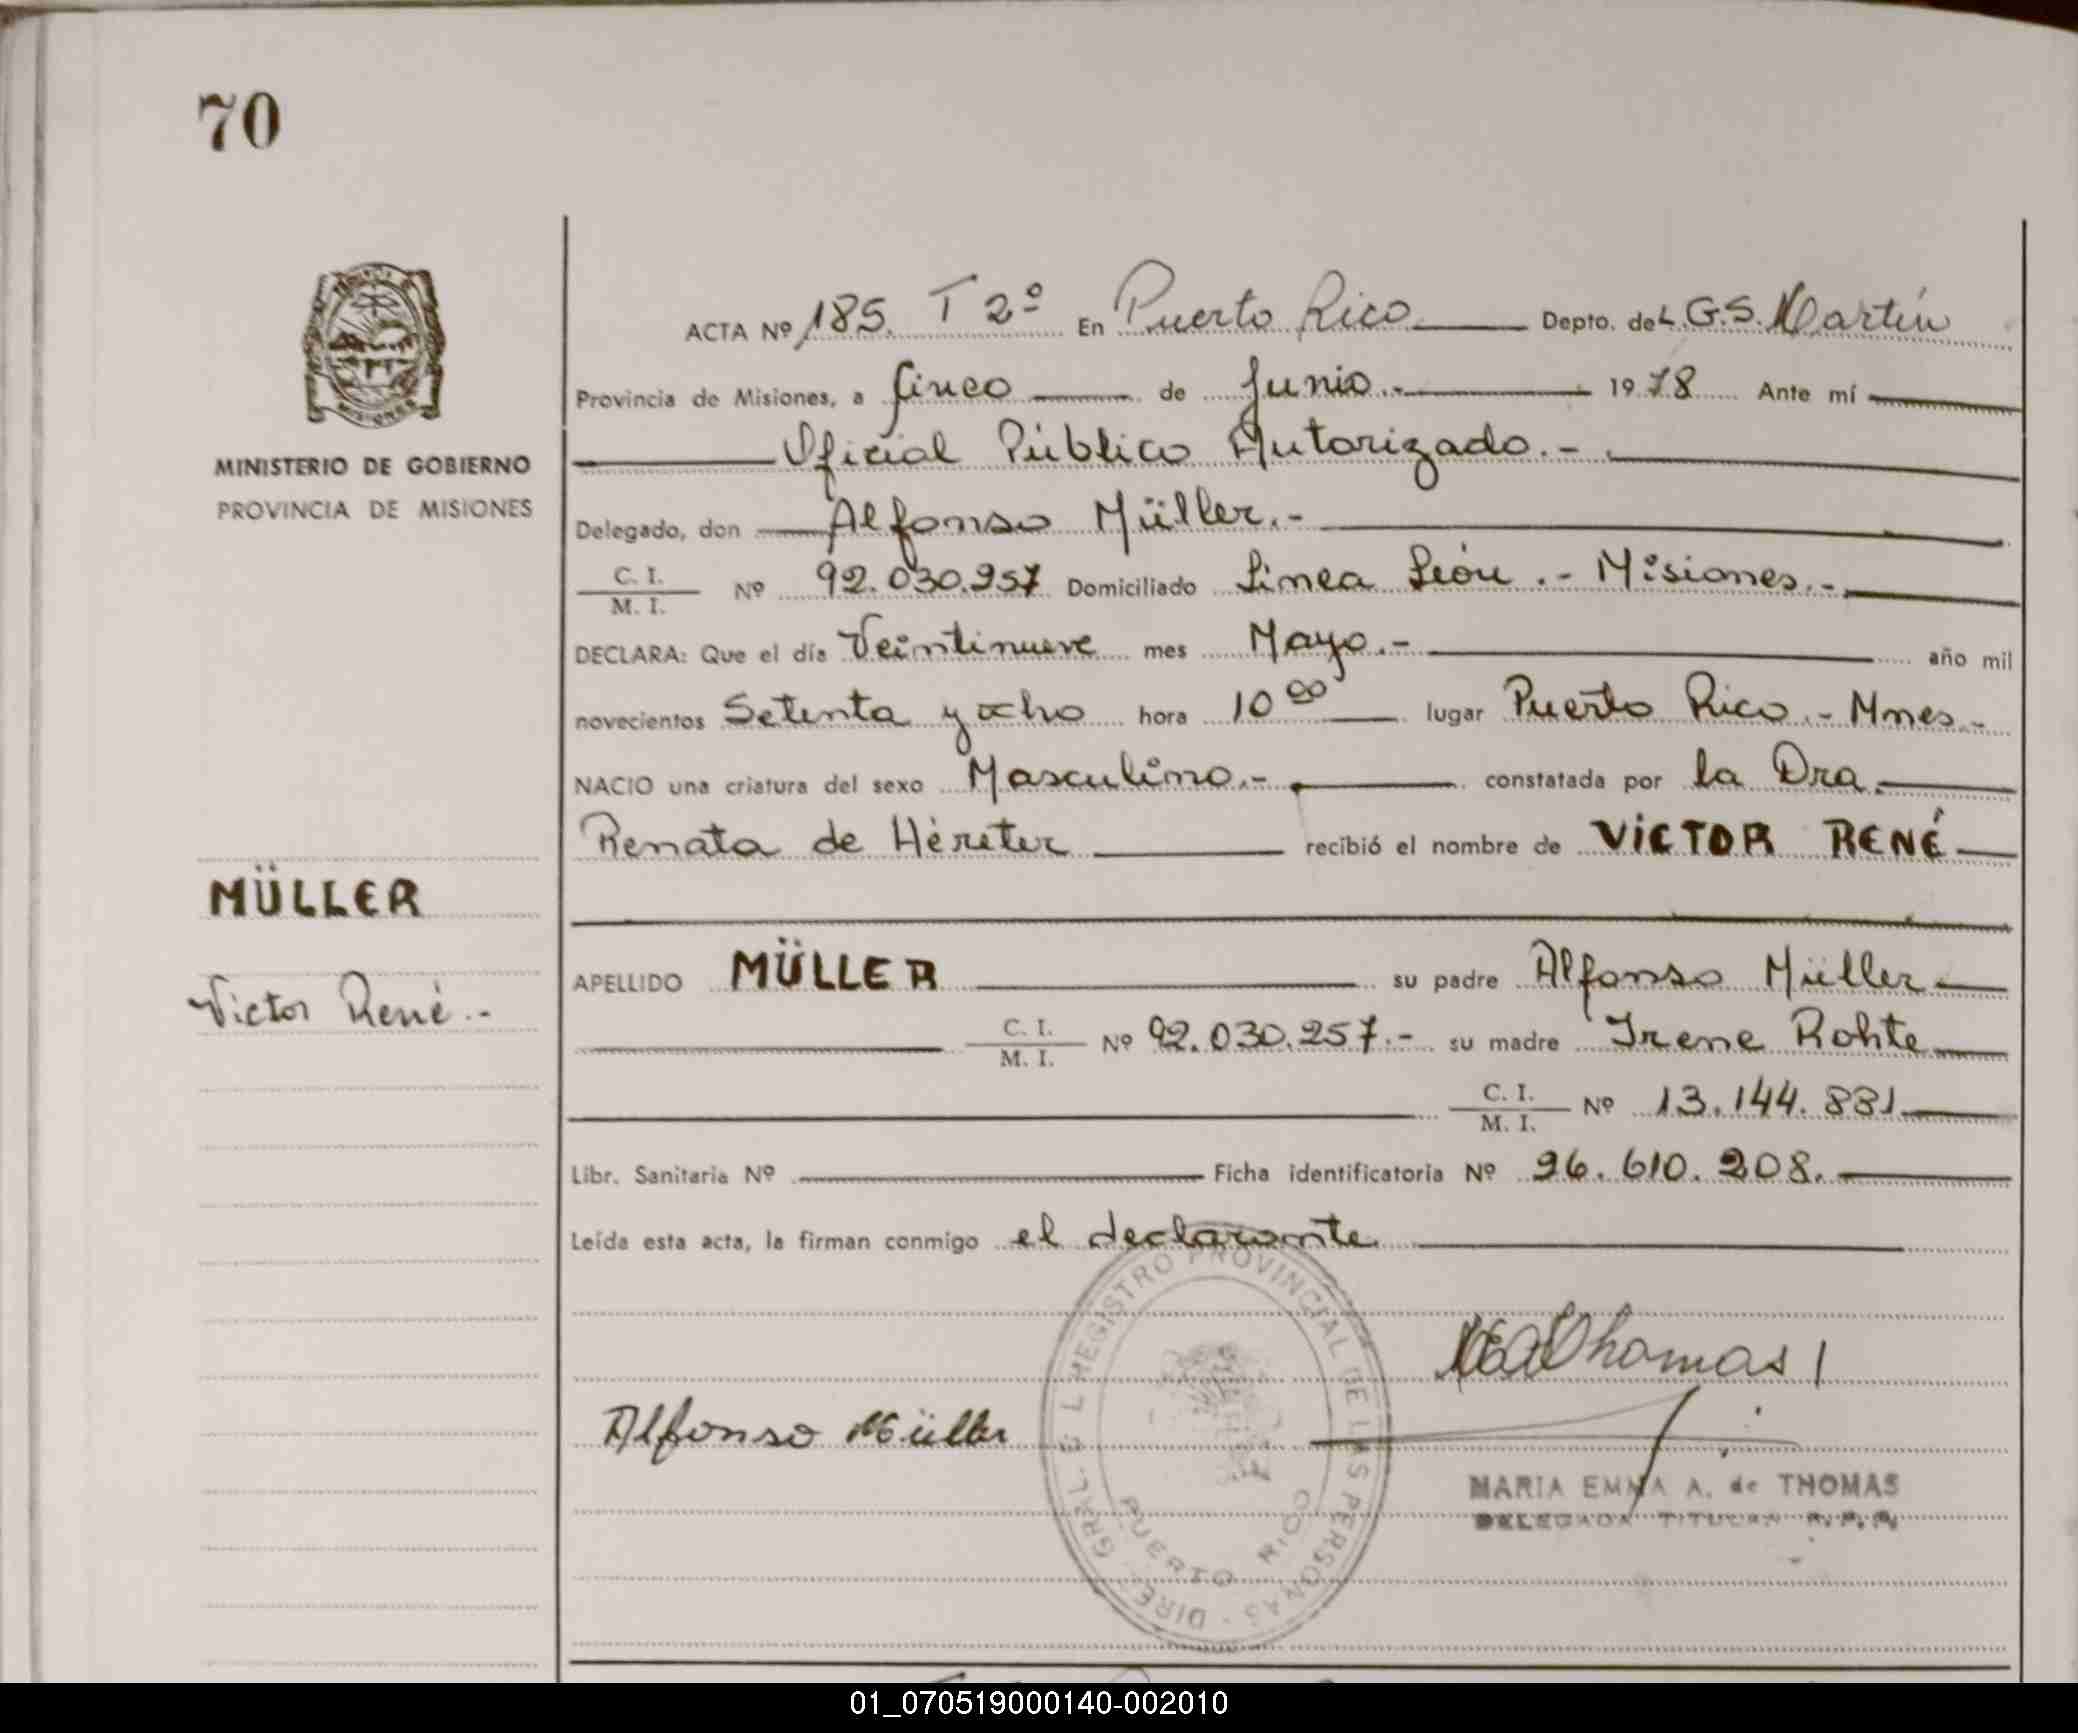 70
ACTA Nº 185. T 2º En Puerto Rico Depto. de L.G.S. Martín
Provincia de Misiones, a cinco de Junio.- 1978 Ante mí
Oficial Público Autorizado.-
MINISTERIO DE GOBIERNO
PROVINCIA DE MISIONES
Delegado, don Alfonso Müller.-
C. I. / M. I. Nº 92.030.257 Domiciliado Linea León.- Misiones.-
DECLARA: Que el día Veintinueve mes Mayo.- año mil
novecientos Setenta y ocho hora 10 00 lugar Puerto Rico.- Mnes.-
NACIO una criatura del sexo Masculino.- constatada por la Dra.
Renata de Héreter recibió el nombre de VICTOR RENÉ
MÜLLER
Victor René.-
APELLIDO MÜLLER su padre Alfonso Müller
C. I. / M. I. Nº 92.030.257.- su madre Irene Rohte
C. I. / M. I. Nº 13.144.881
Libr. Sanitaria Nº Ficha identificatoria Nº 26.610.208.
Leída esta acta, la firman conmigo el declarante
MEAThomas
Alfonso Müller
DIREC. GRAL. DEL REGISTRO PROVINCIAL DE LAS PERSONAS
PUERTO RICO
MARIA EMMA A. de THOMAS
DELEGADA TITULAR R. P. P.
01_070519000140-002010